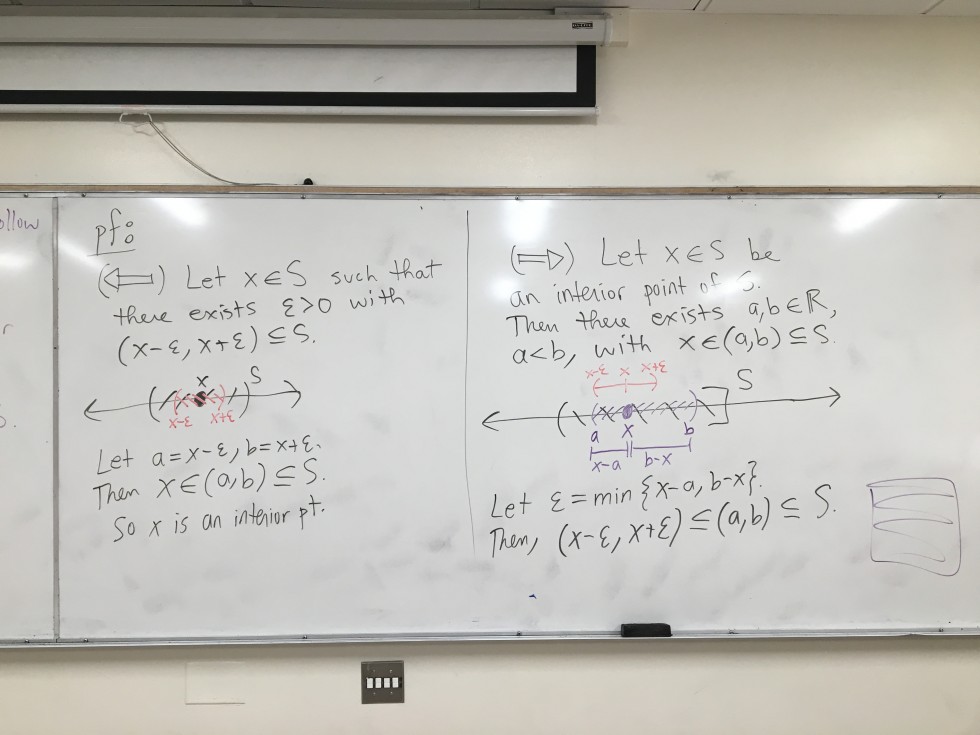 ollow
r
pf:
(⟸) Let x∈S such that
there exists ε>0 with
(x-ε, x+ε) ⊆ S.
x S
x-ε x+ε
Let a=x-ε, b=x+ε.
Then x∈(a,b) ⊆ S.
So x is an interior pt.
(⟹) Let x∈S be
an interior point of S.
Then there exists a,b∈ℝ,
a<b, with x∈(a,b) ⊆ S.
x-ε x x+ε
S
a x b
x-a b-x
Let ε = min {x-a, b-x}.
Then, (x-ε, x+ε) ⊆ (a,b) ⊆ S.